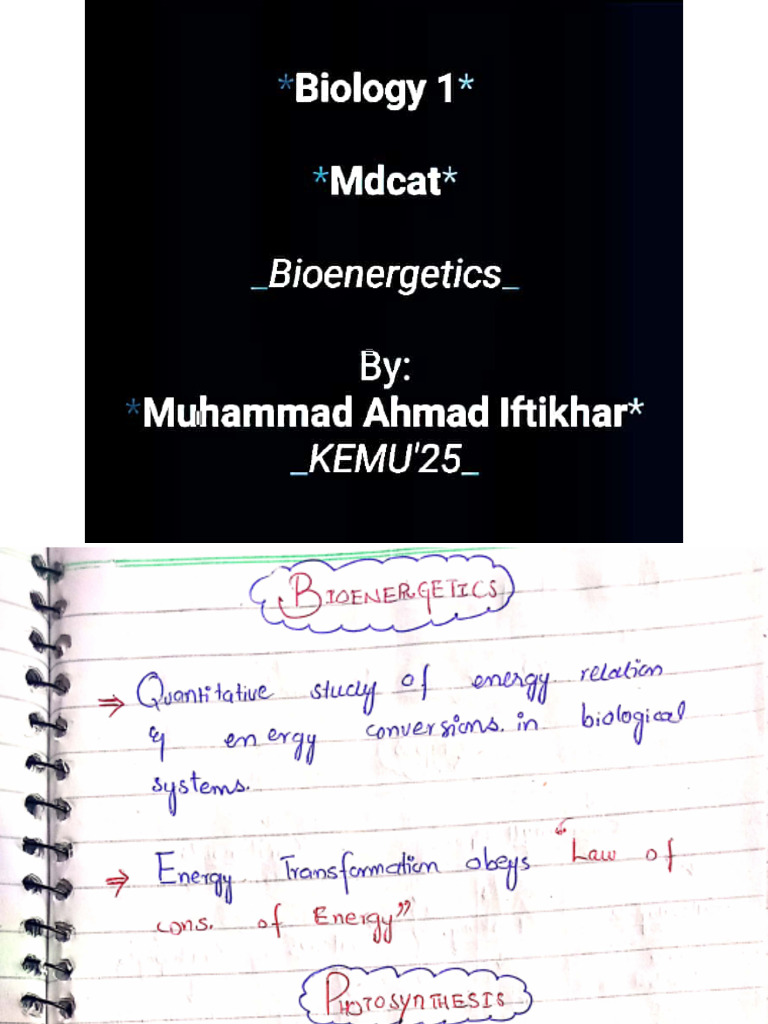 *Biology 1*
*Mdcat*
_Bioenergetics_
By:
*Muhammad Ahmad Iftikhar*
_KEMU'25_
BIOENERGETICS
⇒ Quantitative study of energy relation
& energy conversions. in biological
systems.
⇒ Energy Transformation obeys “Law of
cons. of Energy”
PHOTOSYNTHESIS